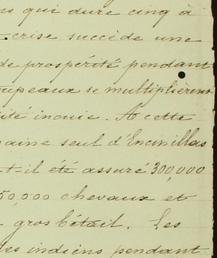 s qui dure cinq à
crise succède une
de prospérité pendant
upeaux se multiplièrent
ité inouïe. A cette
maine seul d'Encinillas
t-il été assuré 300,000
50,000 chevaux et
gros bétail. Les
les indiens pendant